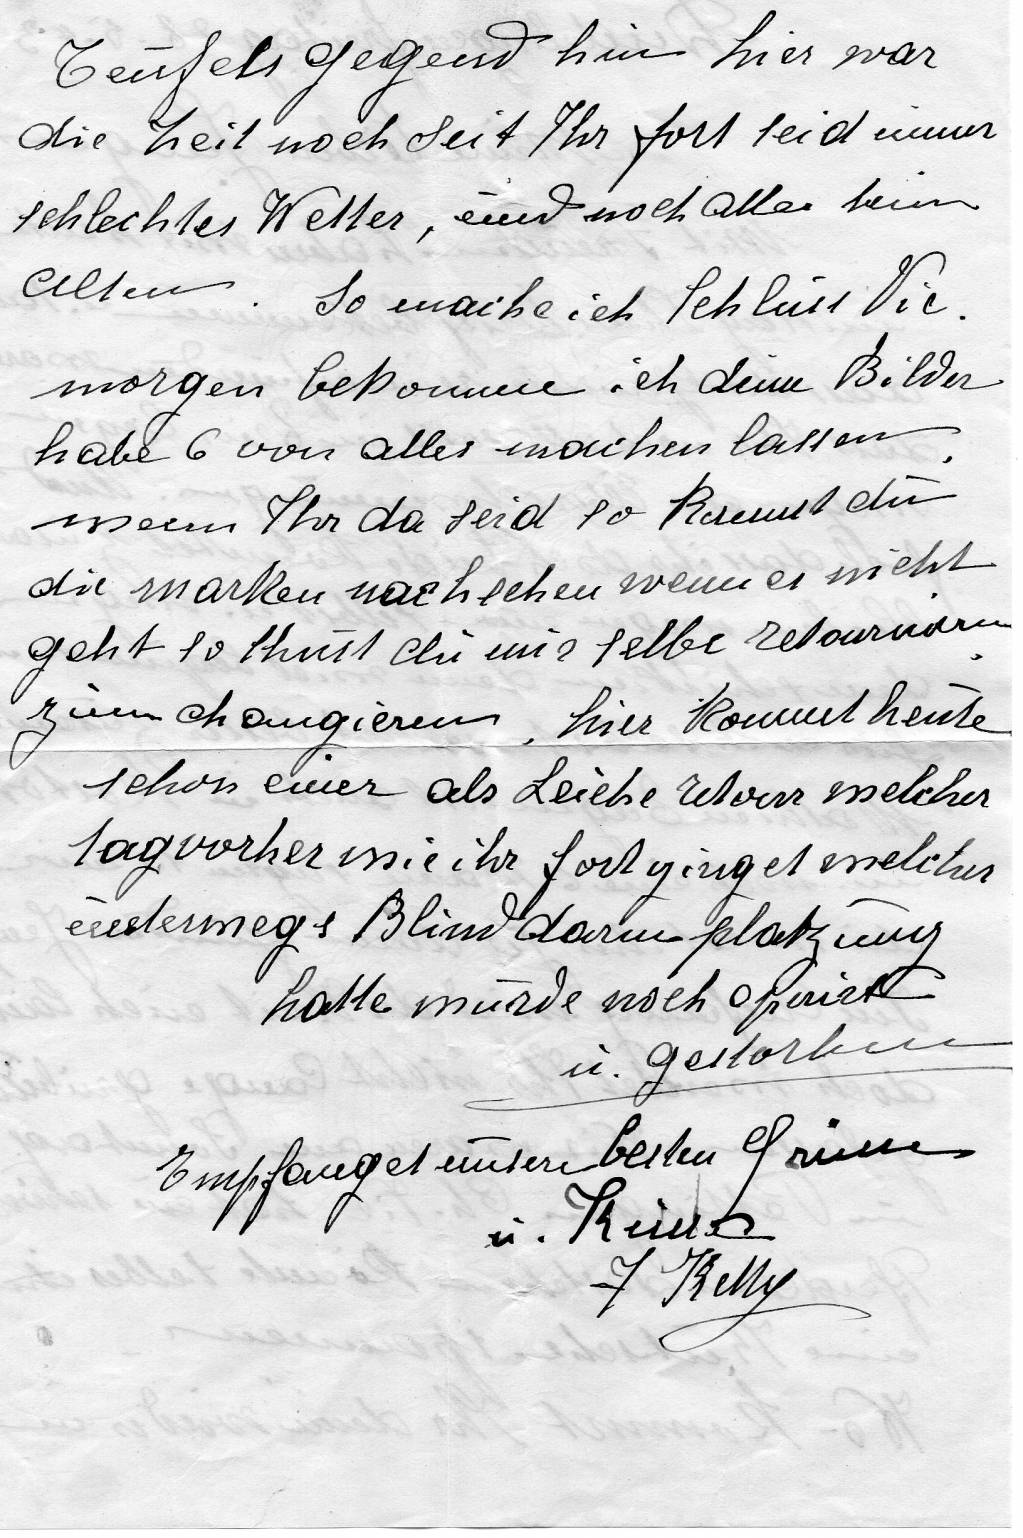 Teufels gegend hin hier war
die Zeit noch seit Ihr fort seid immer
schlechtes Wetter, und noch alles beim
Alten. So mache ich Schluss Vic.
morgen bekomme ich deine Bilder
habe 6 von alles machen lassen,
wenn Ihr da seid so kannst du
die marken nachsehen wenn es nicht
geht so thust du mir selbe retournieren
zum changieren, hier kommt heute
schon einer als Leiche retour welcher
tag vorher wie ihr fort ginget welcher
unterwegs Blinddarm platzung
hatte wurde noch operirt
u. gestorben
Empfanget unsere besten Grüsse
u. Küsse
Ketty